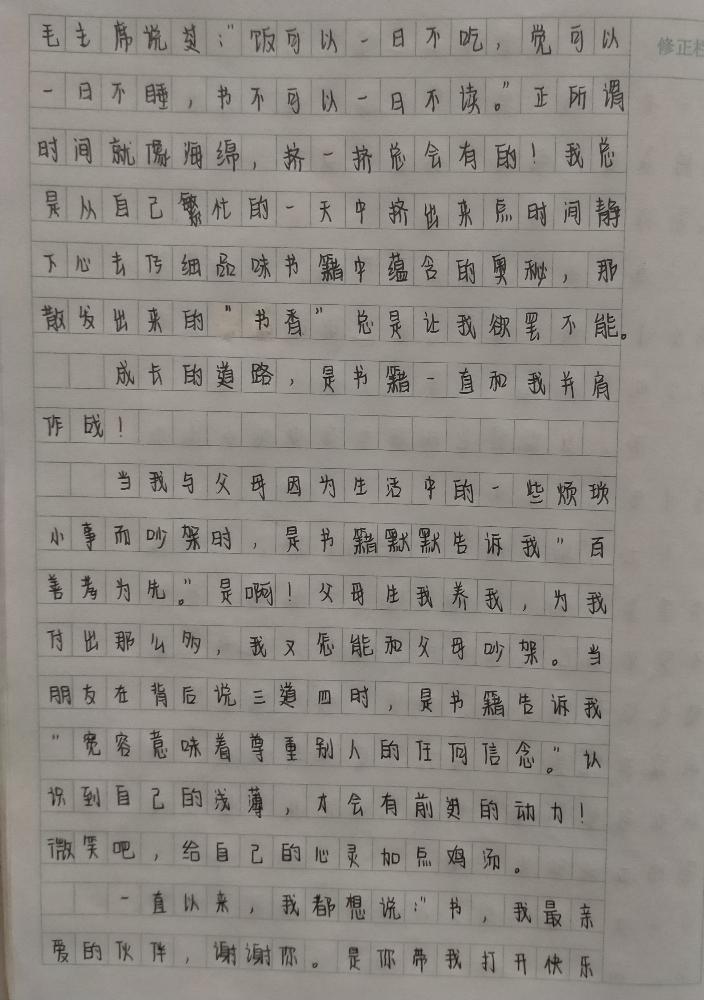 毛主席说过:"饭可以一日不吃，觉可以
一日不睡，书不可以一日不读。"正所谓
时间就像海绵，挤一挤总会有的！我总
是从自己繁忙的一天中挤出来点时间静
下心去仔细品味书籍中蕴含的奥秘，那
散发出来的"书香"总是让我欲罢不能。
成长的道路，是书籍一直和我并肩
作战！
当我与父母因为生活中的一些烦琐
小事而吵架时，是书籍默默告诉我"百
善孝为先。"是啊！父母生我养我，为我
付出那么多，我又怎能和父母吵架。当
朋友在背后说三道四时，是书籍告诉我
"宽容意味着尊重别人的任何信念。"认
识到自己的浅薄，才会有前进的动力！
微笑吧，给自己的心灵加点鸡汤。
一直以来，我都想说:"书，我最亲
爱的伙伴，谢谢你。是你带我打开快乐
修正栏